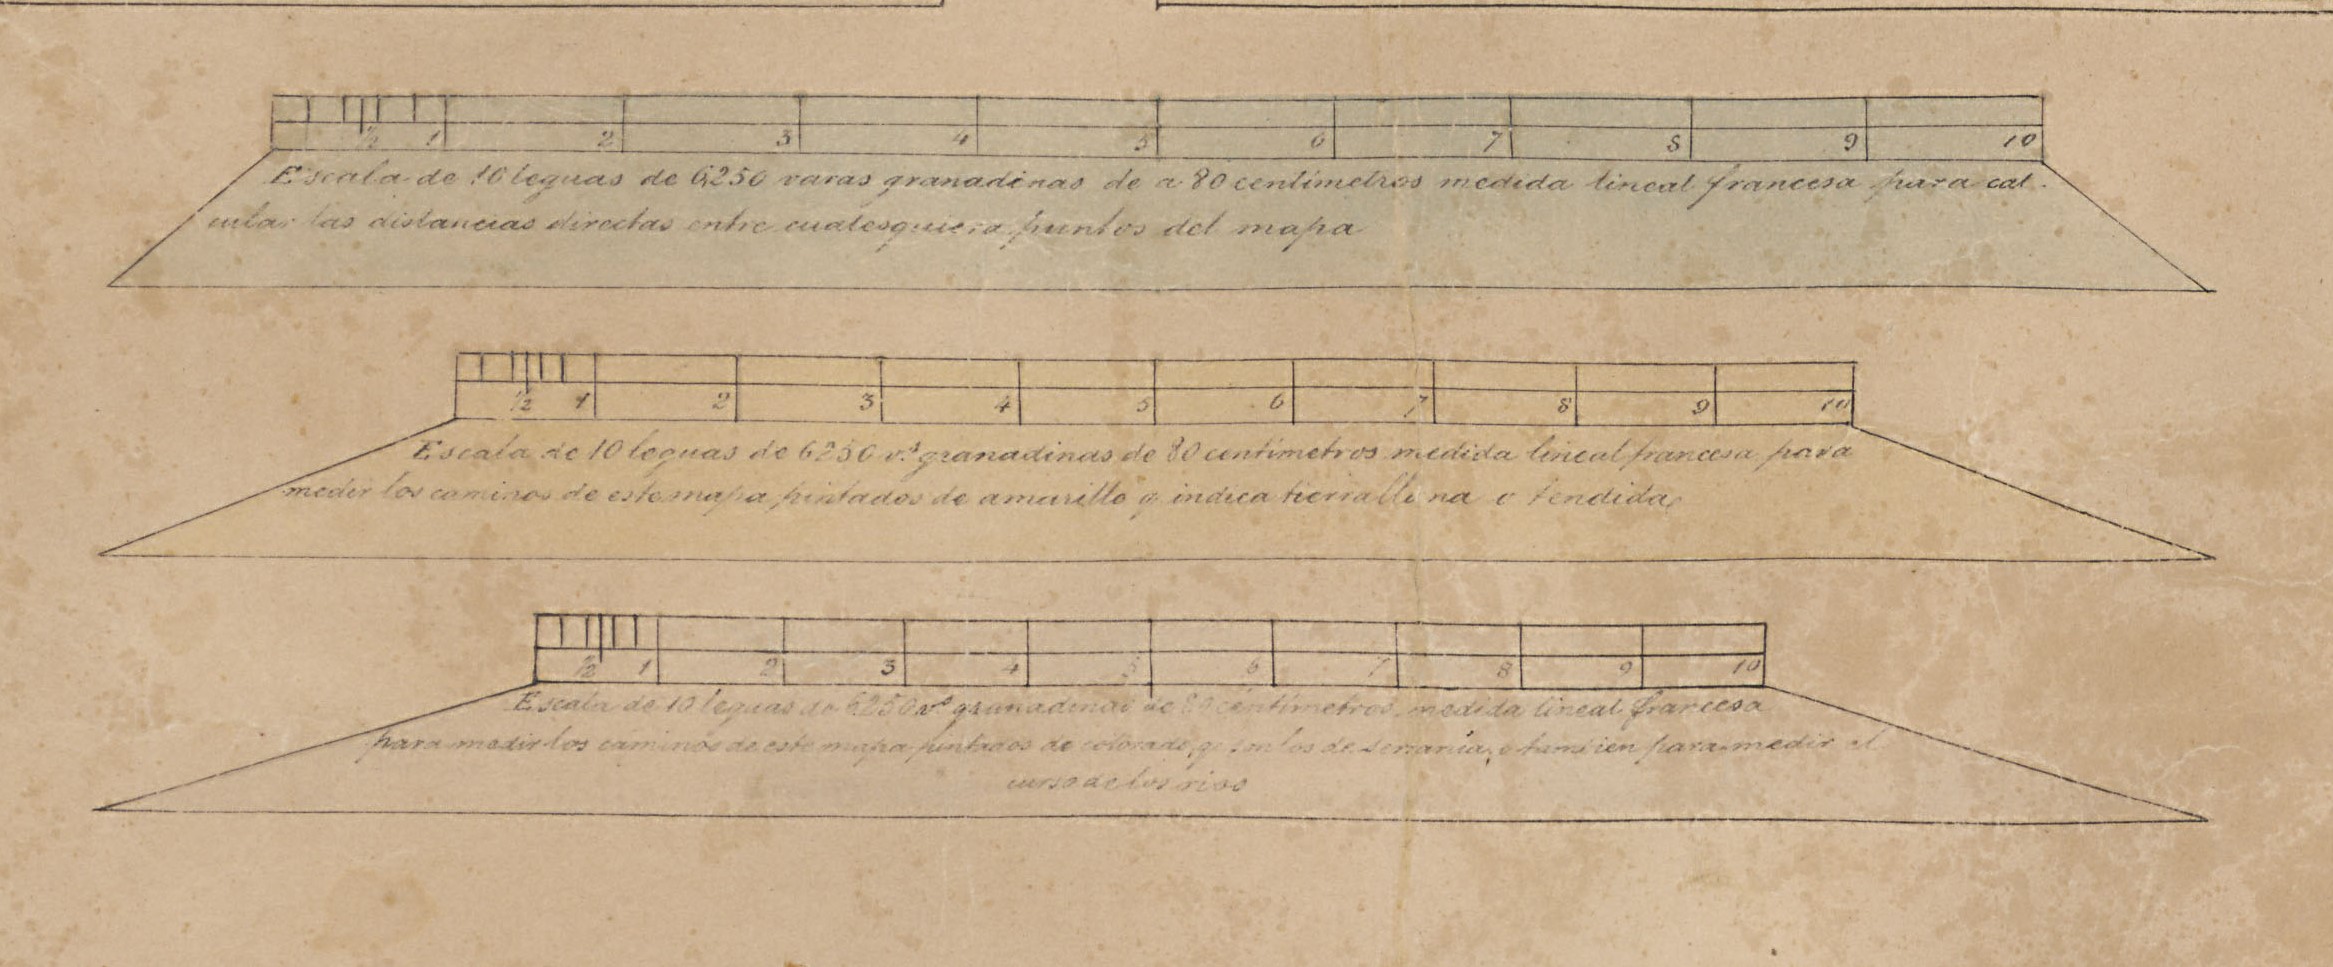 ½ 1 2 3 4 5 6 7 8 9 10
Escala de 10 leguas de 6250 varas granadinas de a 80 centimetros medida lineal francesa para cal-
cular las distancias directas entre cualesquiera puntos del mapa
½ 1 2 3 4 5 6 7 8 9 10
Escala de 10 leguas de 6250 v.s granadinas de 80 centimetros medida lineal francesa para
medir los caminos de este mapa pintados de amarillo q indica tierra llana o tendida
½ 1 2 3 4 5 6 7 8 9 10
Escala de 10 leguas de 6250 v.s granadinas de 80 centimetros medida lineal francesa
para medir los caminos de este mapa pintados de colorado, q son los de serranía, o tambien para medir el
curso de los rios